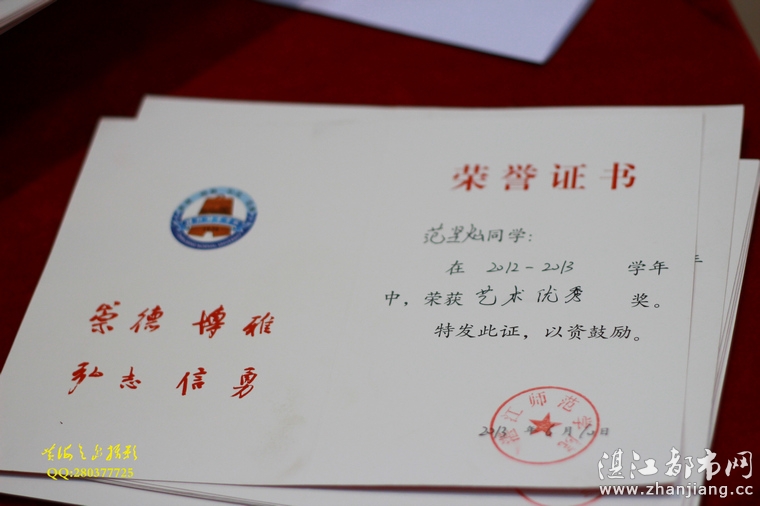 崇德 博雅
弘志 信勇
荣誉证书
范昱灿同学:
在 2012-2013 学年
中,荣获 艺术优秀 奖。
特发此证,以资鼓励。
湛江师范学院
2013 年 6 月 10 日
QQ:280377725
湛江都市网
www.zhanjiang.cc